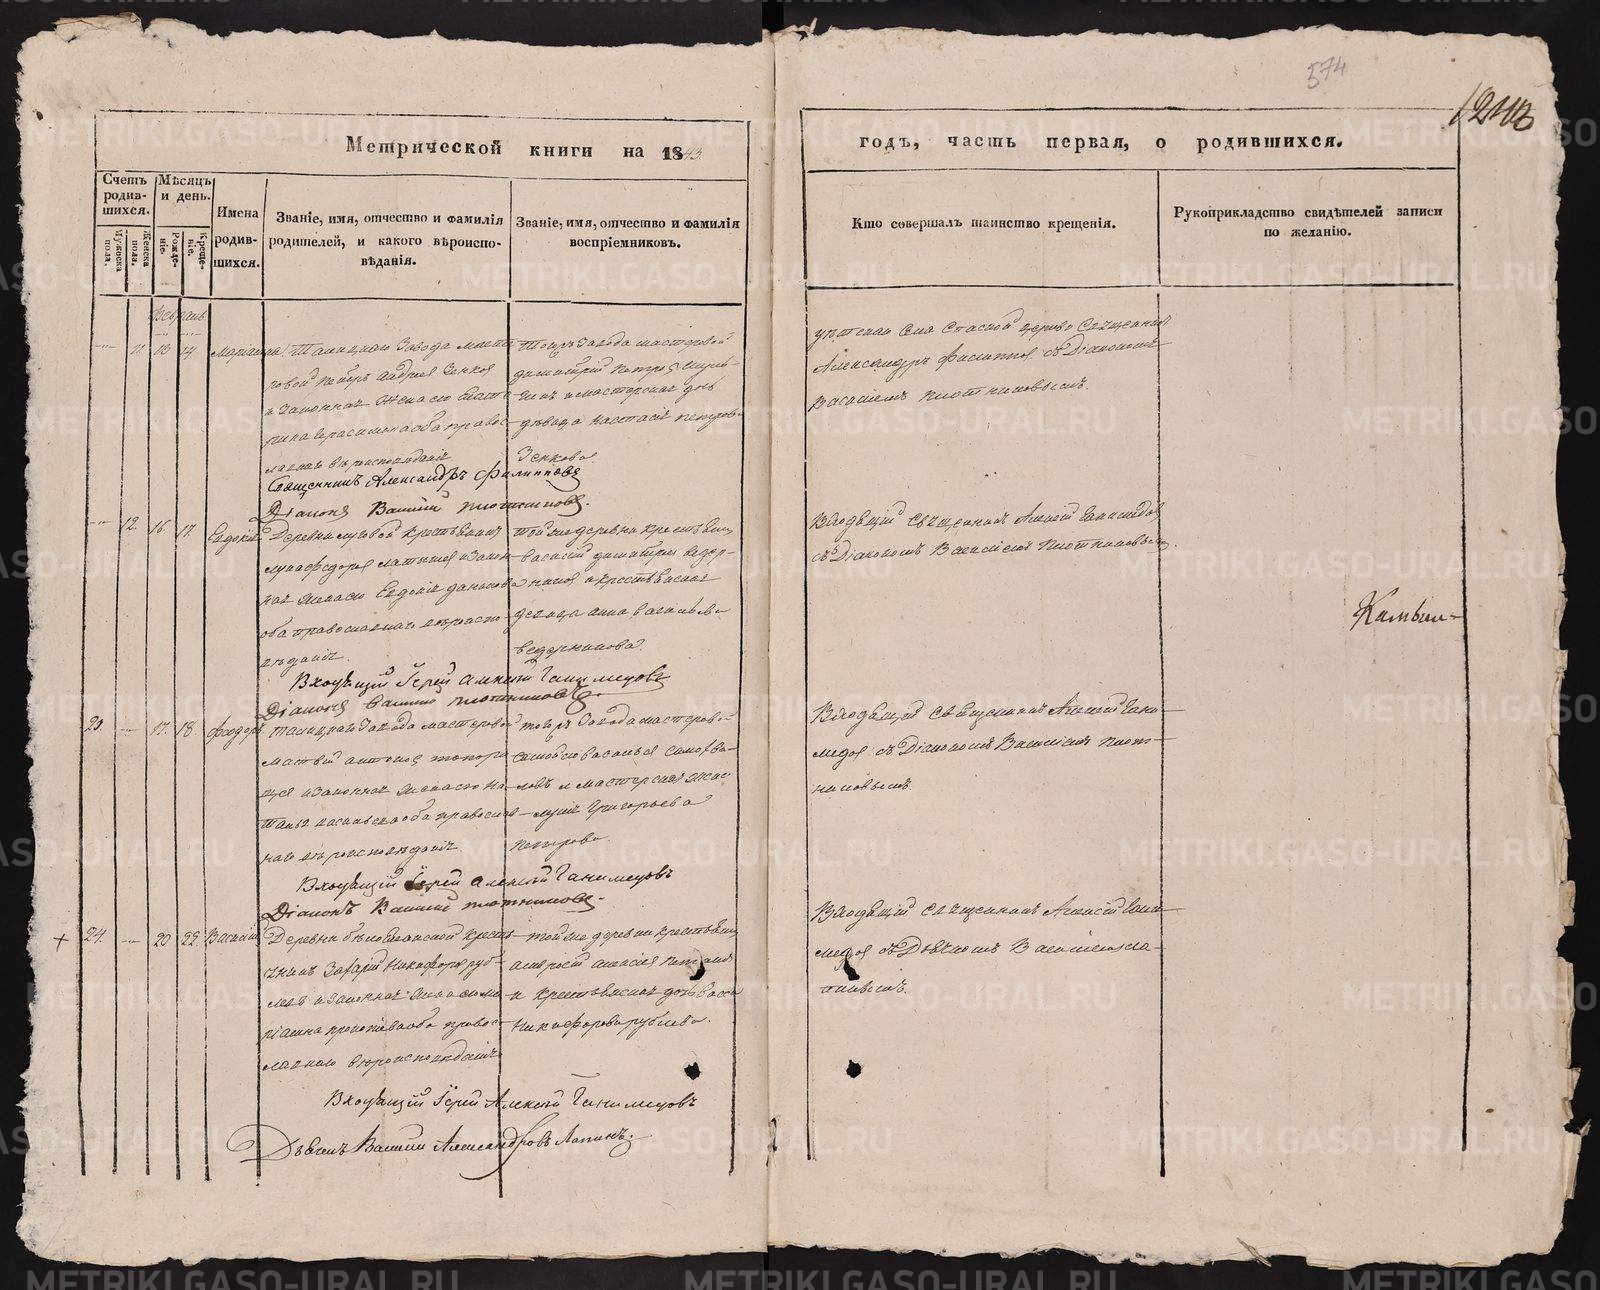 574
1243
Метрической книги на 1843
годъ, часть первая, о родившихся.
Счетъ родив-шихся.
Мѣсяцъ и день.
Мужеска пола.
Женска пола.
Рожде-ніе.
Креще-ніе.
Имена родив-шихся.
Званіе, имя, отчество и фамилія родителей, и какого вѣроиспо-вѣданія.
Званіе, имя, отчество и фамилія воспріемниковъ.
Кто совершалъ таинство крещенія.
Рукоприкладство свидѣтелей записи по желанію.
Февраль
11 13 14
Талицкаго Завода масте-
ровой Петръ Андреев Зенков
и законная жена его Екате-
рина Герасимова оба правос-
лавнаго вѣроисповѣданія
Тогожъ Завода мастеровой
Димитрій Петров
и мастерская дочь
дѣвица Настасія Петрова
Зенкова
Спаской церкви Священникъ
Александръ Филиппов съ Діакономъ
Василіемъ Плотниковымъ.
Священникъ Александръ Филипповъ
Діаконъ Василій Плотниковъ.
12. 16. 17. Евдокія
Деревни Луговой крестьянинъ
Лука Федоров Латышев и закон-
ная жена его Евдокія Данилова
оба православнаго вѣроиспо-
вѣданія.
Той же деревни крестьянин
Василій Димитріев Ведер-
ников и крестьянская
девица Анна Васильева
Ведерникова.
Входящій Священникъ Алексій Ганимедов
съ Діакономъ Василіемъ Плотниковымъ.
Камыш-
Входящій Іерей Алексій Ганимедовъ
Діаконъ Василій Плотниковъ.
23. 17. 18. Федоръ
Талицкаго Завода мастеровой
Матвій Антонов
и законная жена его На-
талья Васильева оба православ-
наго вѣроисповѣданія
тогожъ Завода мастерово-
Васильев Самохва-
ловъ и мастерская жена
Григорьева
Петрова
Входящій Священникъ Алексій Гани-
медов съ Діакономъ Василіемъ Плот-
никовымъ.
Входящій Іерей Алексій Ганимедовъ
Діаконъ Василій Плотниковъ.
24. 20 22 Василій
Деревни крестья-
нинъ Захарій Никифоров Руб-
лев и законная жена его Ма-
ріамна Прокопьева оба правос-
лавнаго вѣроисповѣданія
той же деревни крестьянин
и крестьянская дочь Васса
Никифорова Рублева.
Входящій Священникъ Алексій Гани-
медов съ Дьячкомъ Василіемъ Ла-
пинымъ.
Входящій Іерей Алексій Ганимедовъ
Дьячекъ Василій Александровъ Лапинъ.
METRIKI.GASO-URAL.RU